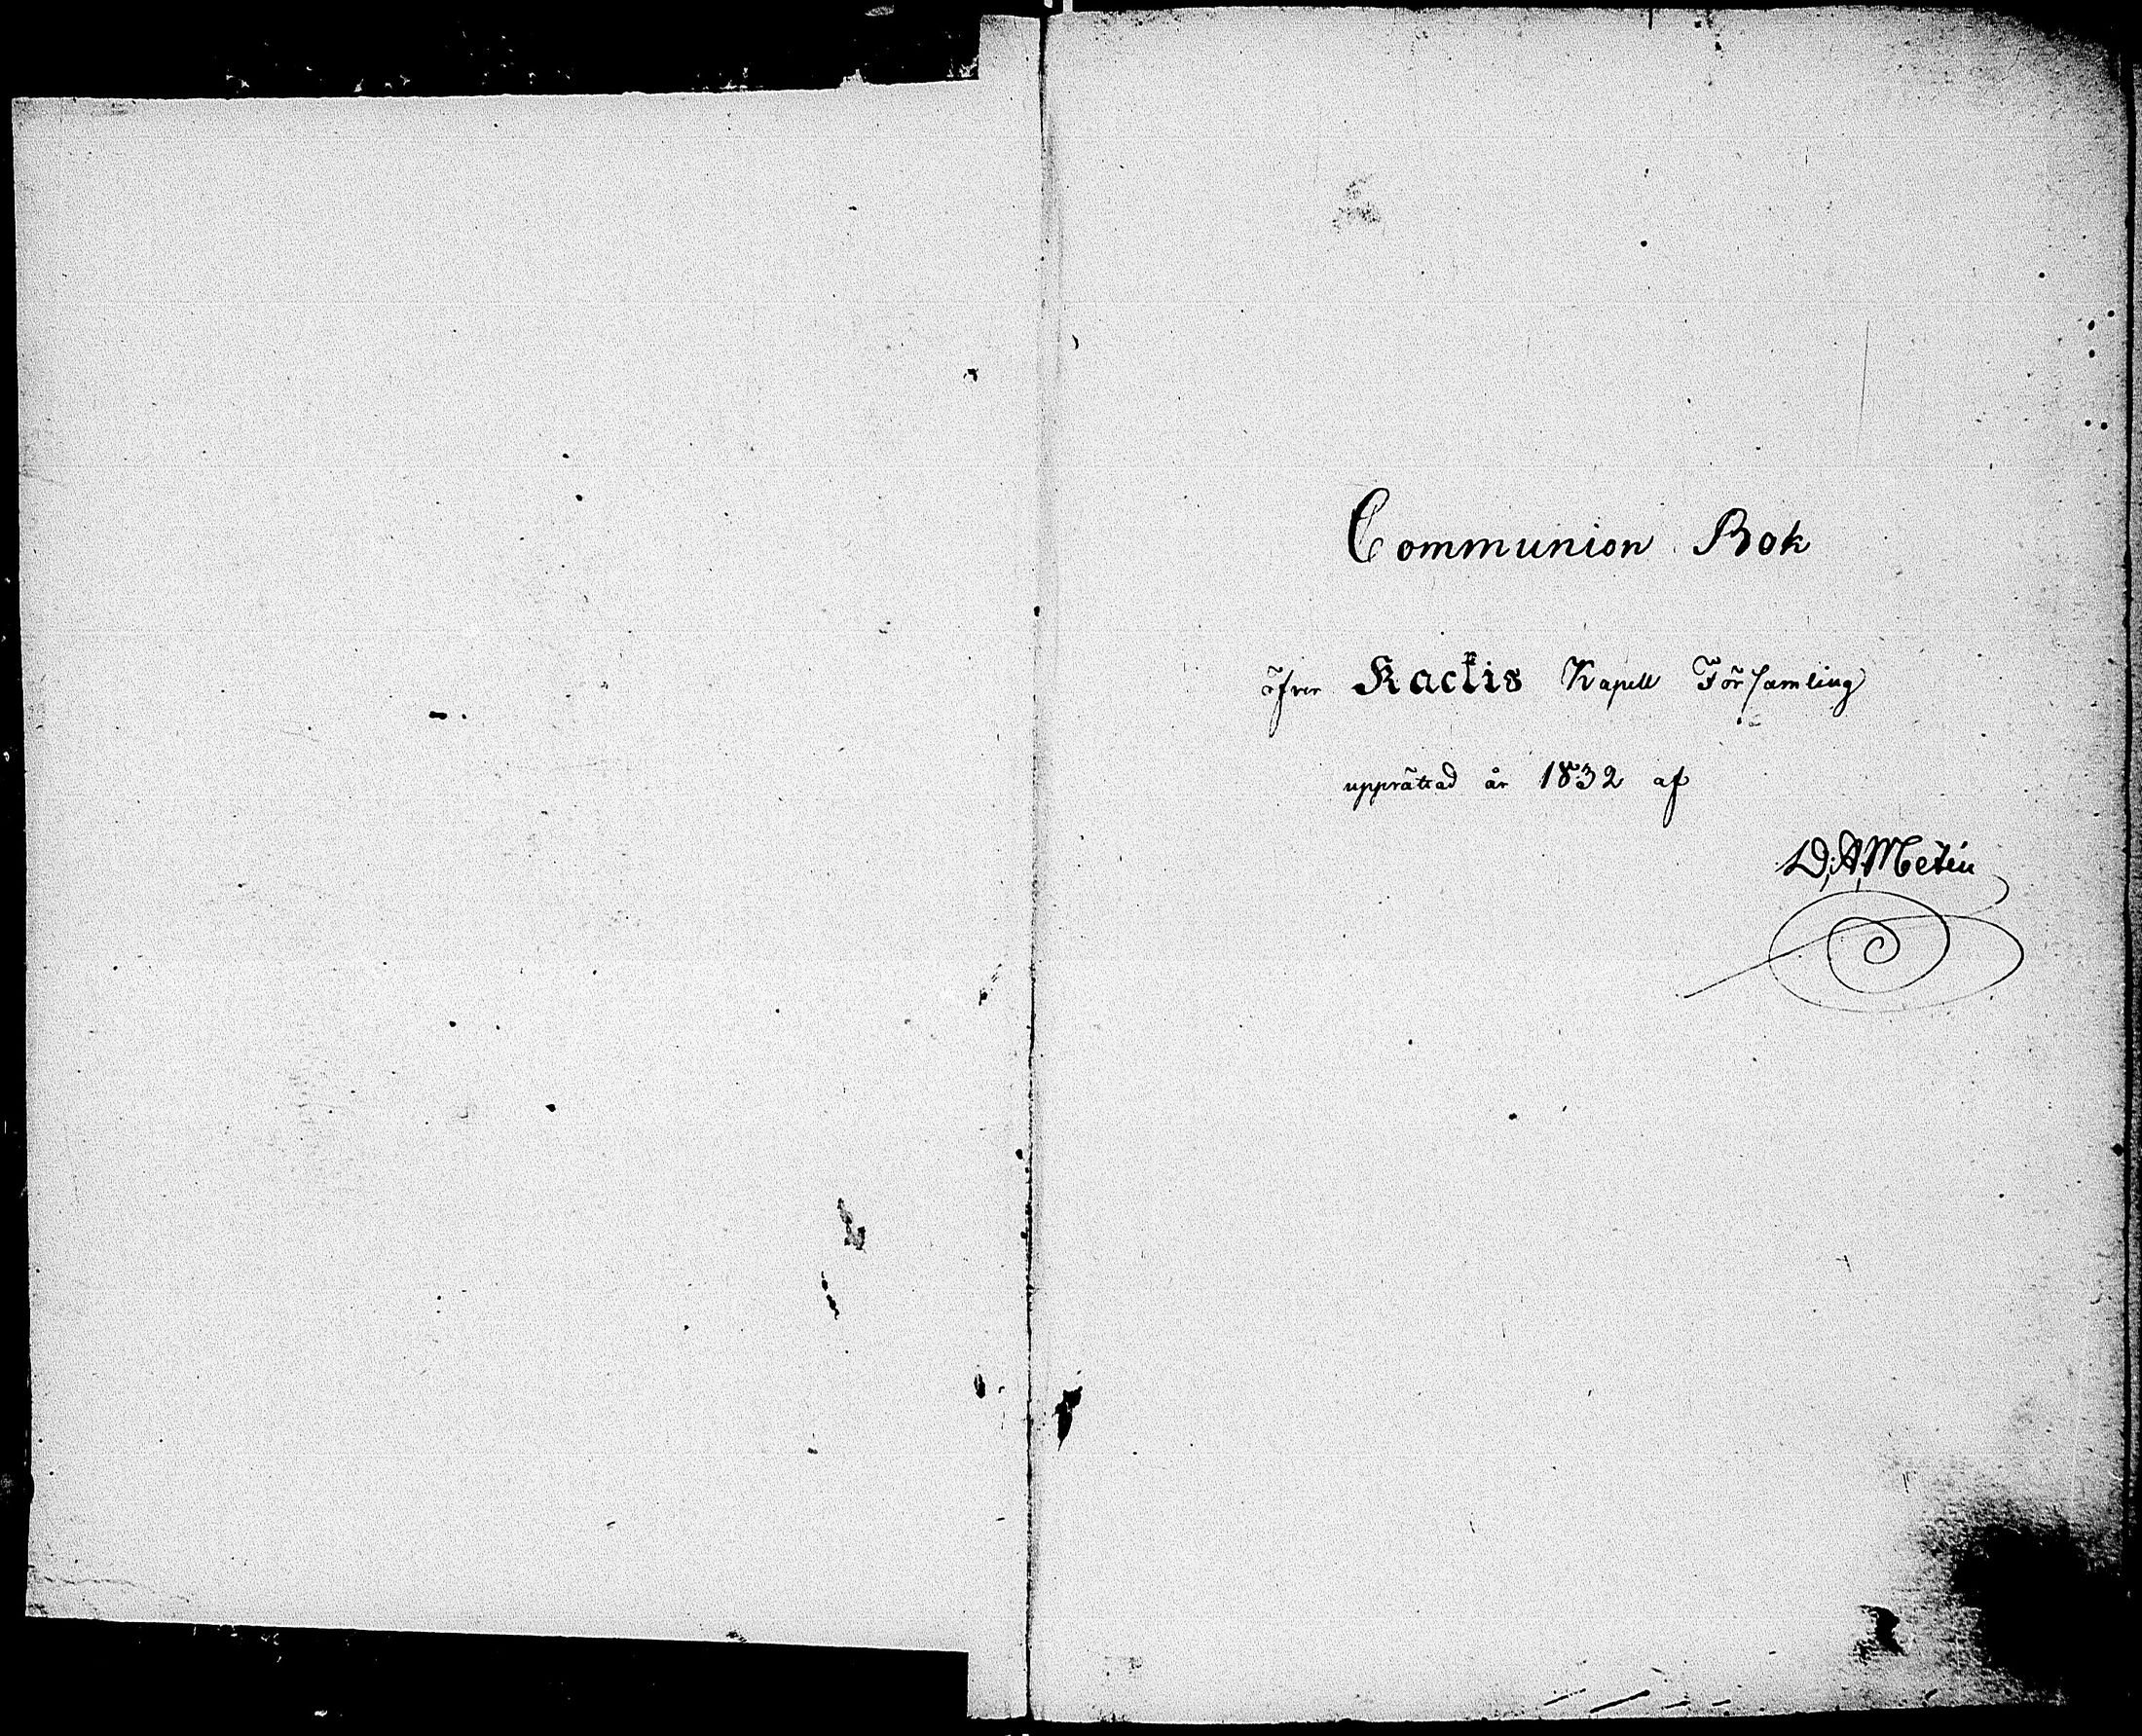 Communion Bok
öfver Kactis Kapell Församling
upprättad år 1832 af
D. A. Metén